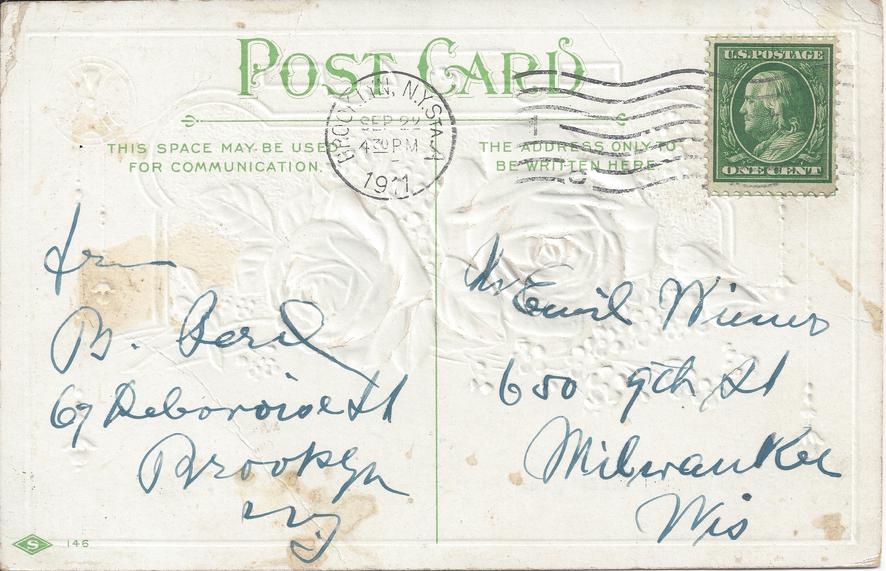 POST CARD
THIS SPACE MAY BE USED
FOR COMMUNICATION.
THE ADDRESS ONLY TO
BE WRITTEN HERE
BROOKLYN, N.Y. STA. A
SEP 22
4 30 PM
1911
U.S. POSTAGE
ONE CENT
B.
67 St
Brooklyn
NY
Mr Emil Wiener
650 9th St
Milwaukee
Wis
S 146